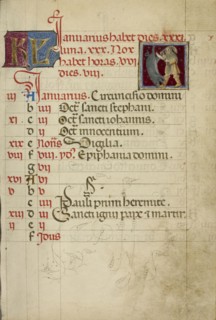 KL Januarius habet dies. xxxi.
luna. xxx. Nox
habet horas. xvi.
dies. viii.
iii A Januarius. Circumcisio domini
b Oct. sancti stephani.
xi c Oct. sancti iohannis.
d Oct. innocentium.
xix e Nonis Vigilia.
viii f viii. yds. Epiphania domini.
g vii
xvi A vi
v b v
c iiii Pauli primi heremite.
xiii d iii Sancti igini pape et martir.
ii e ii
f Idus